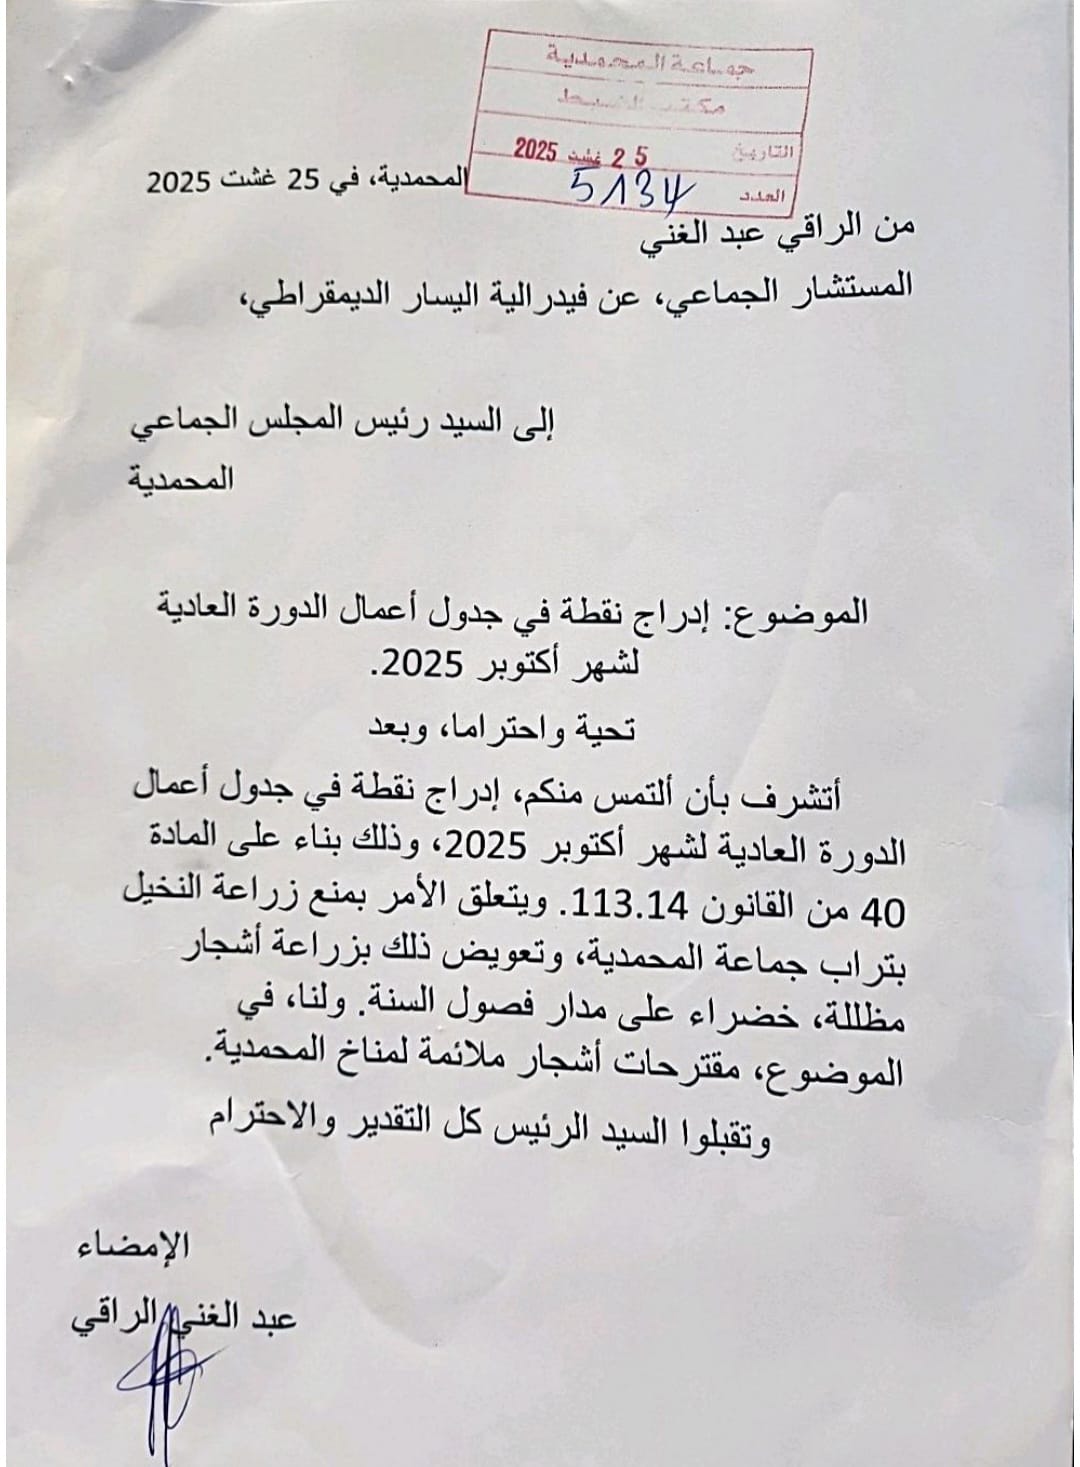 جماعة المحمدية
مكتب الضبط
التاريخ 25 غشت 2025
العدد 5134
المحمدية، في 25 غشت 2025
من الراقي عبد الغني
المستشار الجماعي، عن فيدرالية اليسار الديمقراطي،
إلى السيد رئيس المجلس الجماعي
المحمدية
الموضوع: إدراج نقطة في جدول أعمال الدورة العادية
لشهر أكتوبر 2025.
تحية واحتراما، وبعد
أتشرف بأن ألتمس منكم، إدراج نقطة في جدول أعمال
الدورة العادية لشهر أكتوبر 2025، وذلك بناء على المادة
40 من القانون 113.14. ويتعلق الأمر بمنع زراعة النخيل
بتراب جماعة المحمدية، وتعويض ذلك بزراعة أشجار
مظللة، خضراء على مدار فصول السنة. ولنا، في
الموضوع، مقترحات أشجار ملائمة لمناخ المحمدية.
وتقبلوا السيد الرئيس كل التقدير والاحترام
الإمضاء
عبد الغني الراقي